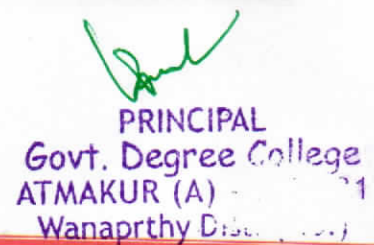 PRINCIPAL
Govt. Degree College
ATMAKUR (A) -
Wanaprthy